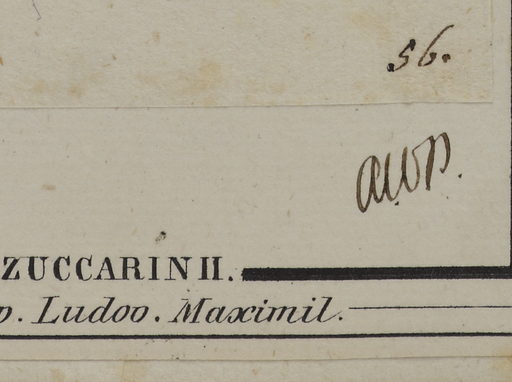 56.
ZUCCARINII.
p. Ludov. Maximil.